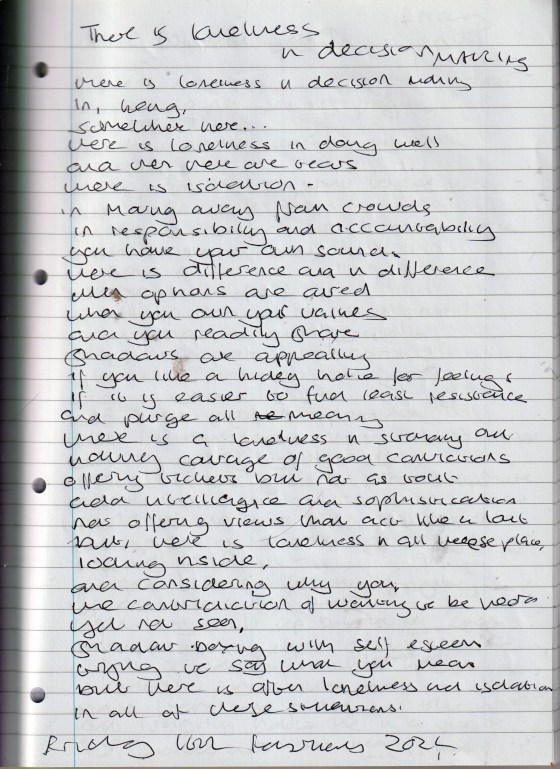 There is loneliness
in decision MAKING
there is loneliness in decision making
in, being,
somewhere here...
there is loneliness in doing well
and when there are tears
there is isolation -
in moving away from crowds
in responsibility and accountability
you have your own sound.
there is difference and in difference
when opinions are aired
when you own your values
and you readily share
shadows are appealing
if you like a hidey hole for feelings
if it is easier to find least resistance
and purge all meaning
there is a loneliness in standing out
having courage of good convictions
offering but not as
add intelligence and sophistication
not offering views that act like a
but, there is loneliness in all these place,
looking inside,
and considering why you,
the contradiction of wanting to be
yet not seen,
shadow boxing with self esteem
trying to say what you mean
but there is often loneliness and isolation
in all of these situations.
Friday 2024